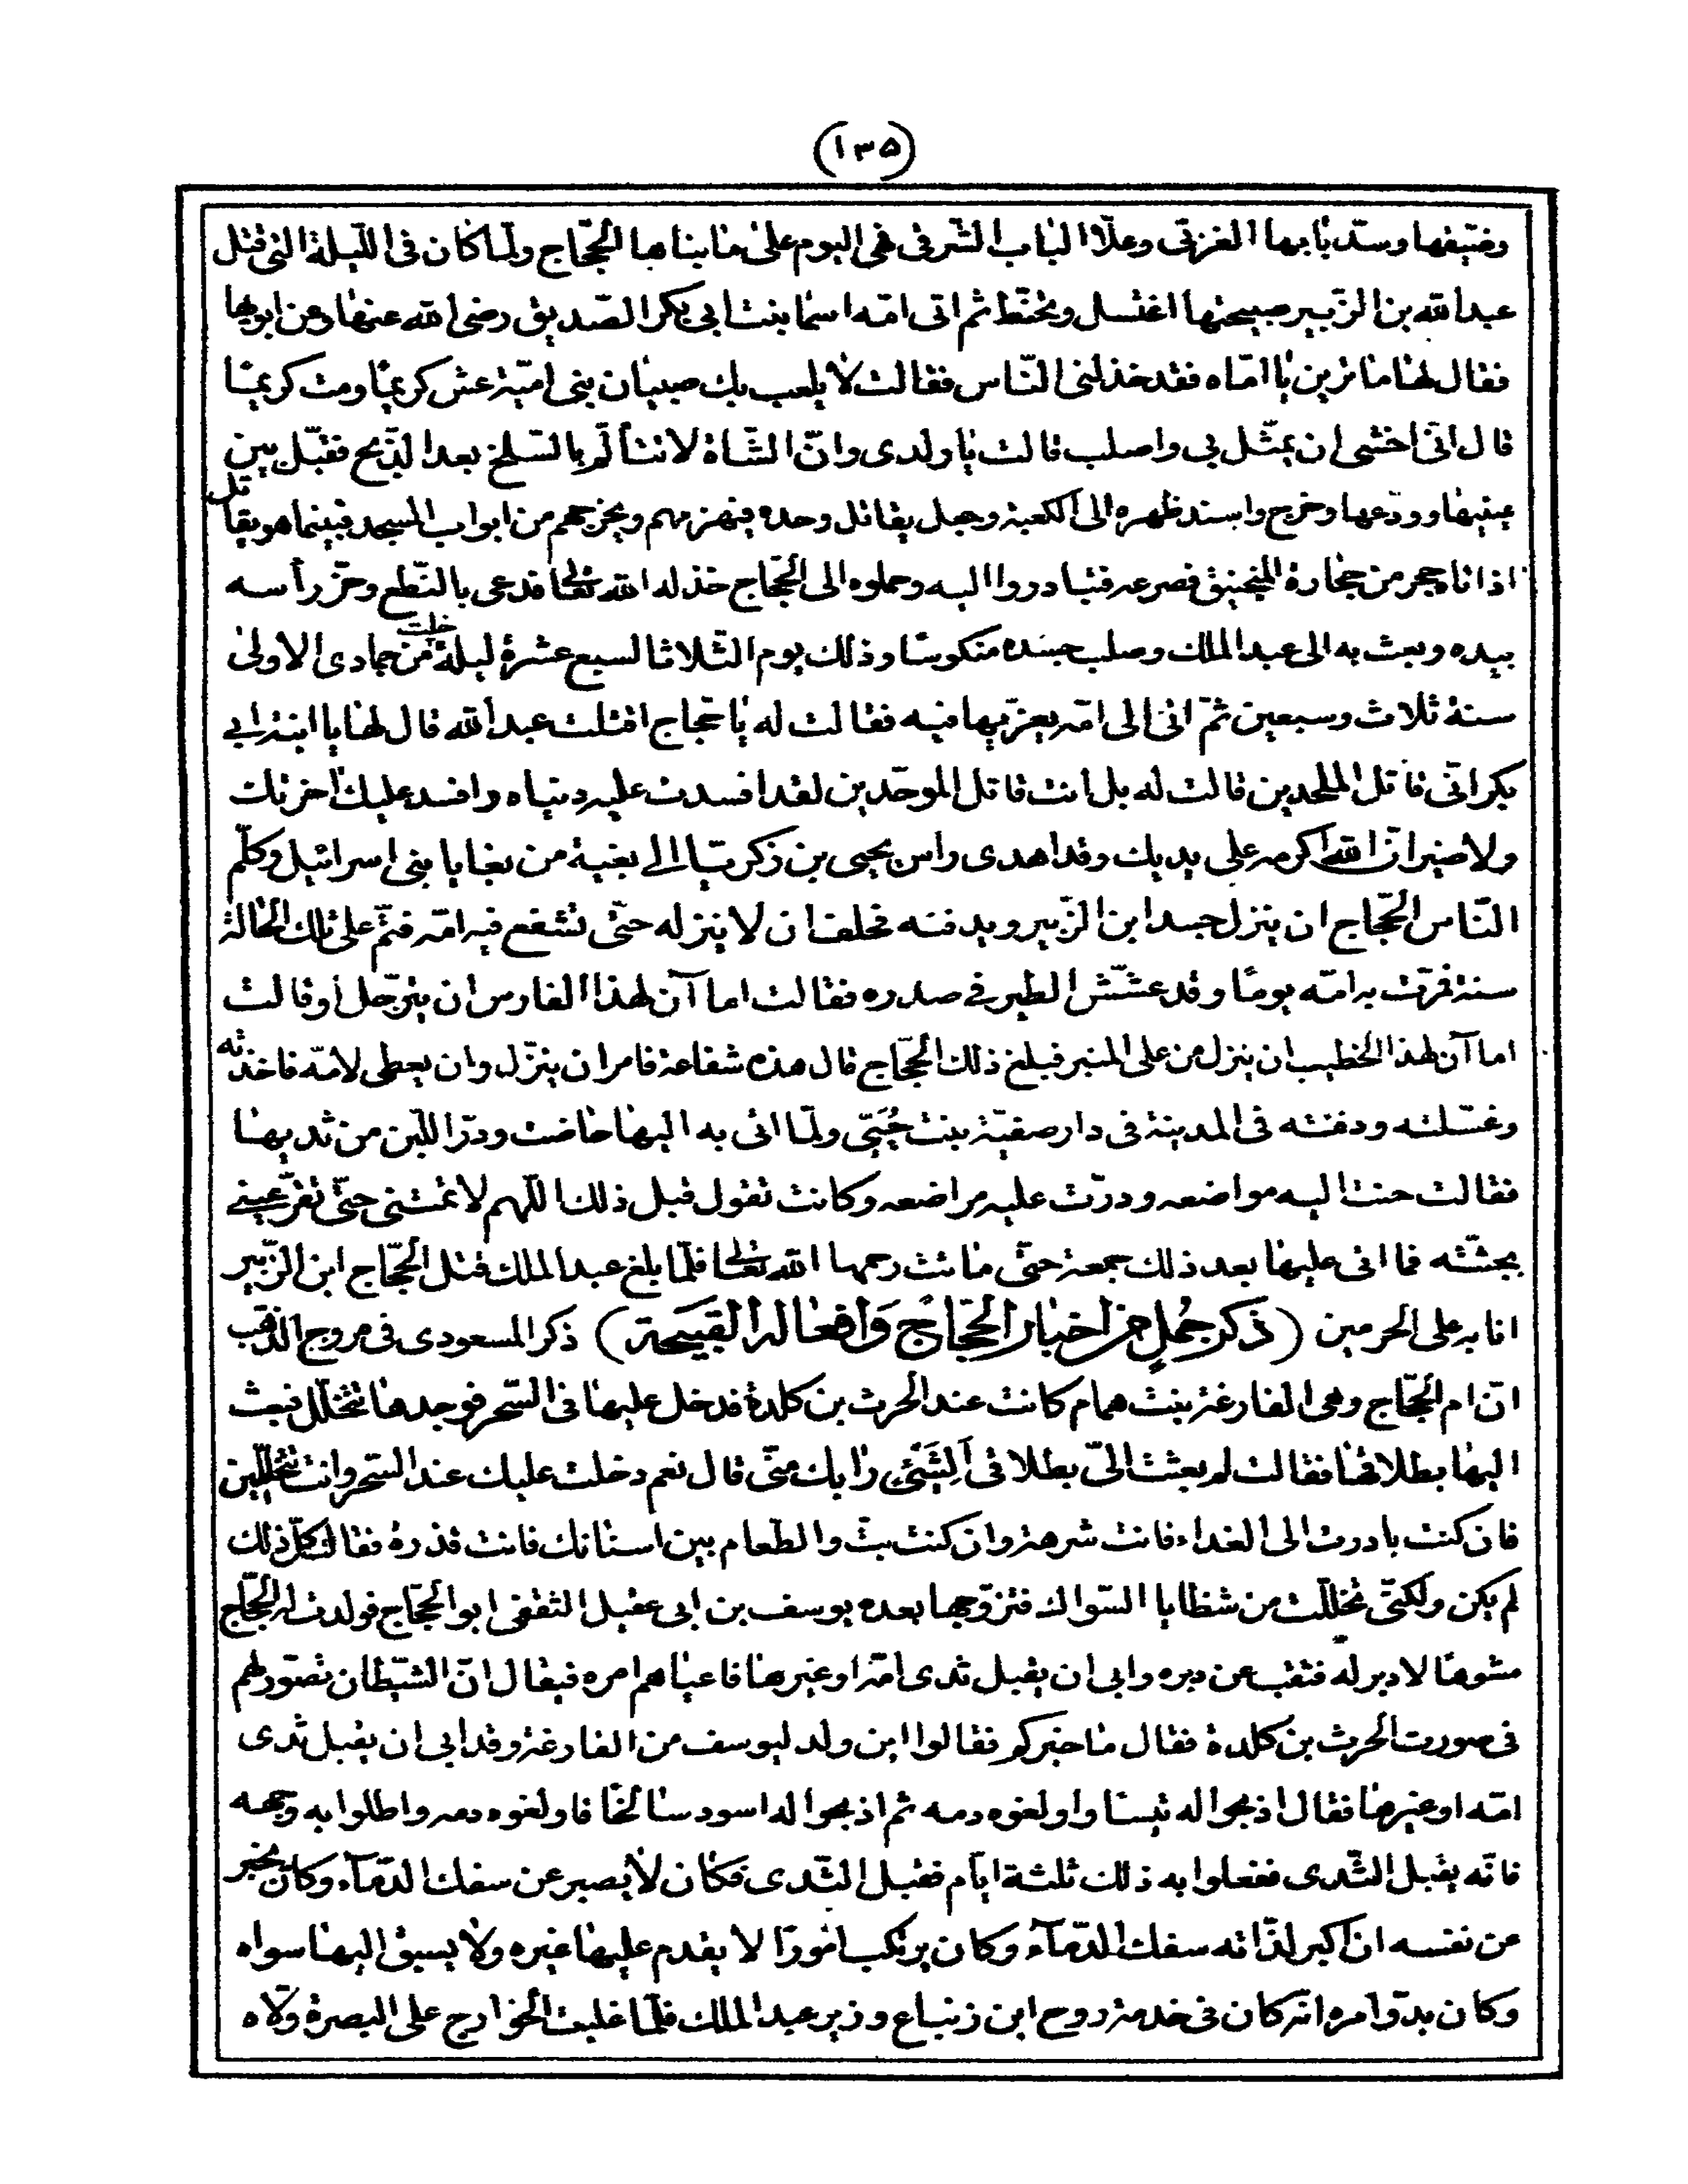 (١٣۵)
وضيّقها وسدّ بابها الغربى وعلا الباب الشرقى فهى اليوم على ما بناها الحجّاج ولما كان فى اللّيلة التى قتل
عبدالله بن الزّبير صبيحتها اغتسل وتحنّط ثم اتى امّه اسما بنت ابى بكر الصّديق رضى الله عنها وعن ابويها
فقال لها ما ترين يا امّاه فقد خذلنى النّاس فقالت لا يلعب بك صبيان بنى اميّة عش كريمًا ومت كريمًا
قال انّى اخشى ان يمثّل بى واصلب قالت يا ولدى وانّ الشّاة لا تتألّم بالسّلخ بعد الذّبح فقبّل بين
عينيها وودّعها وخرج واسند ظهره الى الكعبة وجعل يقاتل وحده فيهزمهم ويخرجهم من ابواب المسجد فبينما هو يقاتل
اذ اتاه حجر من حجارة المنجنيق فصرعه فتبادروا اليه وحملوه الى الحجّاج خذله الله تعالى فدعى بالنّطع وحزّ رأسه
بيده وبعث به الى عبدالملك وصلب جسده منكوسًا وذلك يوم الثّلاثا لسبع عشرة ليلة خلت من جمادى الاولى
سنة ثلاث وسبعين ثمّ اتى الى امّه يعزّيها فيه فقالت له يا حجاج اقتلت عبدالله قال لها يا ابنة ابى
بكر انّى قاتل الملحدين قالت له بل انت قاتل الموحّدين لقد افسدت عليه دنياه وافسد عليك آخرتك
ولا ضير انّ الله اكرمه على يديك وقد اهدى راس يحيى بن زكريّا الى بغية من بغايا بنى اسرائيل وكلّم
النّاس الحجّاج ان ينزل جسد ابن الزّبير ويدفنه فحلف ان لا ينزله حتّى تشفع فيه امّه فتمّ على تلك الحالة
سنة فمرّت به امّه يومًا وقد عشّش الطير فى صدره فقالت اما آن لهذا الفارس ان يترجّل او قالت
اما آن لهذا الخطيب ان ينزل من على المنبر فبلغ ذلك الحجّاج قال هذه شفاعة فامر ان ينزّل وان يعطى لامّه فاخذته
وغسّلته ودفنته فى المدينة فى دار صفيّة بنت حُيَىّ ولمّا اتى به اليها حاضت ودرّ اللّبن من ثديها
فقالت حنت اليه مواضعه ودرّت عليه مراضعه وكانت تقول قبل ذلك اللّهم لا تمتنى حتّى تقرّ عينى
بجثّته فما اتى عليها بعد ذلك جمعة حتّى ماتت رحمها الله تعالى فلمّا بلغ عبدالملك قتل الحجّاج ابن الزّبير
انابه على الحرمين (ذكر جُمَلٍ من اخبار الحجّاج وَافعاله القبيحة) ذكر المسعودى فى مروج الذّهب
انّ ام الحجّاج وهى الفارغة بنت همام كانت عند الحرث بن كلدة فدخل عليها فى السّحر فوجدها تتخلّل فبعث
اليها بطلاقها فقالت لم بعثت الىّ بطلاقى اَلِشَىْءٍ رابك منّى قال نعم دخلت عليك عند السّحر وانت تتخلّلين
فان كنت بادرت الى الغداء فانت شرهة وان كنت بتّ والطّعام بين اسنانك فانت قذرة فقالت كلّ ذلك
لم يكن ولكنّى تخلّلت من شظايا السّواك فتزوّجها بعده يوسف بن ابى عقيل الثقفى ابو الحجّاج فولدت له الحجّاج
مشوهًا لا دبر له فثقب عن دبره وابى ان يقبل ثدى امّه او غيرها فاعياهم امره فيقال انّ الشّيطان تصوّر لهم
فى صورت الحرث بن كلدة فقال ما خبركم فقالوا ابن ولد ليوسف من الفارغة وقد ابى ان يقبل ثدى
امّه او غيرها فقال اذبحوا له تيسًا واولغوه دمه ثم اذبحوا له اسود سالخًا فاولغوه دمه واطلوا به وجهه
فانّه يقبل الثّدى ففعلوا به ذلك ثلثة ايّام فقبل الثّدى فكان لا يصبر عن سفك الدّمآء وكان يخبر
عن نفسه ان اكبر لذّاته سفك الدّمآء وكان يرتكب امورًا لا يقدم عليها غيره ولا يسبق اليها سواه
وكان بدوّ امره انّه كان فى خدمة روح ابن زنباع وزير عبدالملك فلمّا غلبت الخوارج على البصرة ولّاه